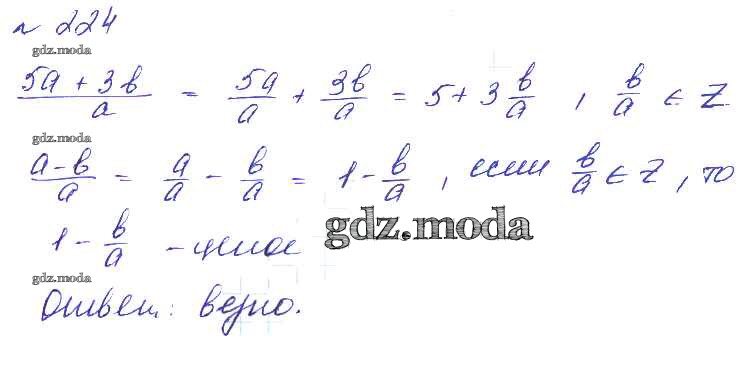 № 224
gdz.moda
(5a + 3b)/a = 5a/a + 3b/a = 5 + 3 b/a , b/a ∈ Z
gdz.moda
(a - b)/a = a/a - b/a = 1 - b/a , если b/a ∈ Z, то
gdz.moda
1 - b/a - целое
gdz.moda
Ответ: верно.